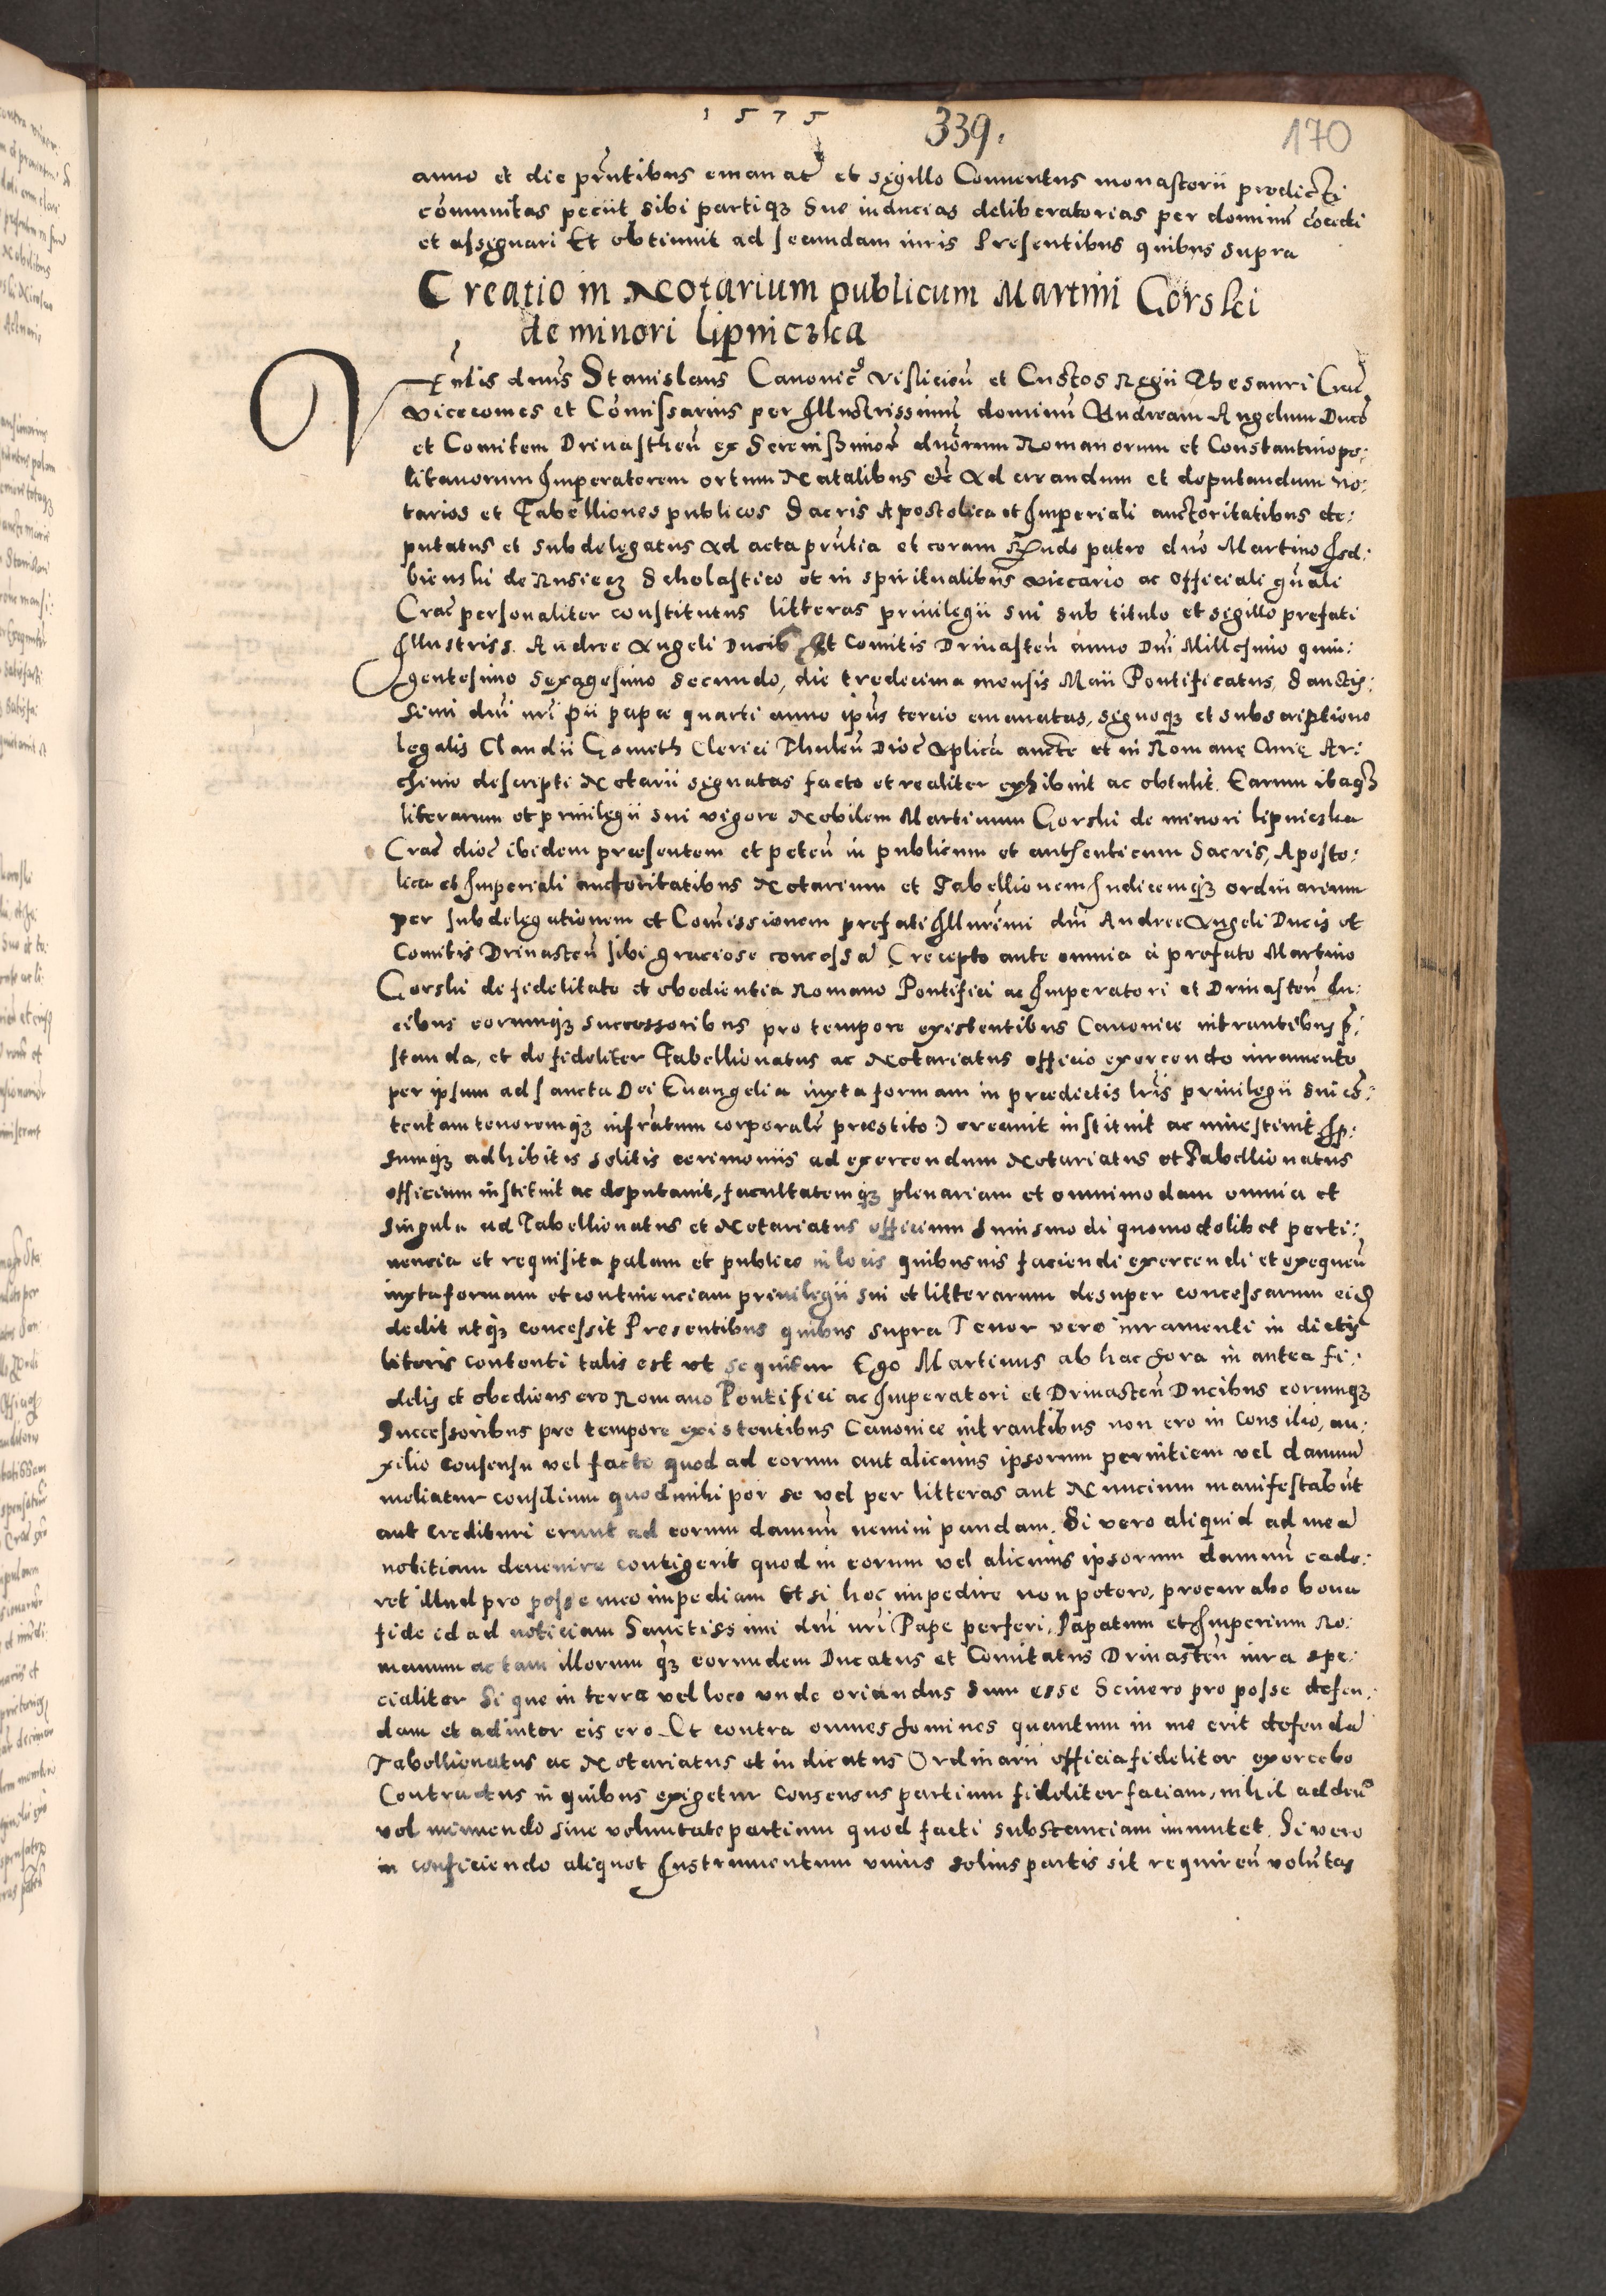 1575
339.
170
anno et die prñtibus emanat̃ et sigillo Conventus monasterii predicti
cõmunitas peciit sibi partiqȝ sue inducias deliberatorias per dominũ cõcedi
et assignari Et obtinuit ad secundam iuris Presentibus quibus supra
Creatio in Notarium publicum Martini Gorski
de minori lipniczka
Vẽnlis dnũs Stanislaus Canonicꝰ Vislicieñ et Custos Regii Thesauri Crac̃
vicecomes et Cõmissarius per Illustrissimũ dominũ Andream Angelum Ducẽ
et Comitem Drivastheñ ex Serenissimorũ dnõrum Romanorum et Constantinopo:
litanorum Imperatorem ortum Natalibus etc̃ Ad creandum et deputandum no:
tarios et Tabelliones publicos Sacris Apostolica et Imperiali auctoritatibus de:
putatus et subdelegatus Ad acta prñtia et coram Rñdo patre dnõ Martino Isd:
bienski de Rusiecz Scholastico et in spiritualibus viccario ac Officiali gñali
Crac̃ personaliter constitutus litteras privilegii sui sub titulo et sigillo prefati
Illustriss. Andree Angeli Ducis Et Comitis Drivasteñ anno Dnĩ Millesimo quin:
gentesimo Sexagesimo Secundo, die tredecima mensis Maii Pontificatus, Sanctis:
simi dnĩ nrĩ pii papæ quarti anno ipũs tercio emanatas, signoqȝ et subscriptione
legalis Claudii Gometh Clerici Thuleñ Dioc̃ Aplica aucte et in Romanę Curię Ar:
chivio descripti Notarii signatas facto et realiter exhibuit ac obtulit. Earum itaqȝ
literarum et privilegii sui vigore Nobilem Martinum Gorski de minori lipnicska
Crac̃ dioc̃ ibidem præsentem et peteñ in publicum et authenticum Sacris, Aposto:
lica et Imperiali auctoritatibus Notarium et Tabellionem Iudicemqȝ ordinarium
per subdelegationem et Comissionem prefati Illurẽmi dnĩ Andree Angeli Ducis et
Comitis Drivasteñ sibi graciose concessã (recepto ante omnia à prefato Martino
Gorski de fidelitate et obedientia Romano Pontifici ac Imperatori et Drivasteñ Du:
cibus eorumqȝ successoribus pro tempore existentibus Canonice intrantibus p̃:
standa, et de fideliter Tabellionatus ac Notariatus officio exercendo iuramento
per ipsum ad sancta Dei Euangelia iuxta formam in prædictis lrĩs privilegii sui cõ:
tentam tenoremqȝ infrãtum corporalr̃ præstito) creavit instituit ac investivit Ip:
sumqȝ adhibitis solitis cerimoniis ad exercendum Notariatus et Tabellionatus
officium instituit ac deputavit, facultatemqȝ plenariam et omnimodam omnia et
singula ad Tabellionatus et Notariatus officium huiusmodi quomodolibet perti:
nencia et requisita palam et publice in locis quibusuis faciendi exercendi et exequeñ
iuxta formam et continenciam privilegii sui et litterarum desuper concessarum eid̃
dedit atqȝ concessit Presentibus quibus supra Tenor vero iuramenti in dictis
literis contenti talis est ut sequitur Ego Martinus ab hac hora in antea fi:
delis et obediens ero Romano Pontifici ac Imperatori et Drivasteñ Ducibus eorumqȝ
Successoribus pro tempore existentibus Canonice intrantibus non ero in Consilio, au:
xilio consensu vel facto quod ad eorum aut alicuius ipsorum pernitiem vel damnũ
moliatur consilium quod mihi per se vel per litteras aut Nuncium manifestabũt
aut Credituri erunt ad eorum damnũ nemini pandam. Si vero aliquid ad meã
notitiam devenire contigerit quod in eorum vel alicuius ipsorum damnũ cede:
ret illud pro posse meo impediam Et si hoc impedire non potero, procurabo bona
fide id ad noticiam Sanctissimi dnĩ nrĩ Pape perferi, Papatum et Imperium Ro:
manum ac tam illorum qȝ eorundem Ducatus et Comitatus Drivasteñ iura spe:
cialiter Si que in terra vel loco unde oriandus sum esse Scivero pro posse defen:
dam et adiutor eis ero Et contra omnes homines quantum in me erit defendã
Tabellionatus ac Notariatus et iudicatus Ordinarii officia fideliter exercebo
Contractus in quibus exigetur consensus partium fideliter faciam, nihil addeñ
vel minuendo sine voluntate partium quod facti substanciam inmutet. Si vero
in conficiendo aliquot Instrumentum unius solius partis sit requireñ volũtas